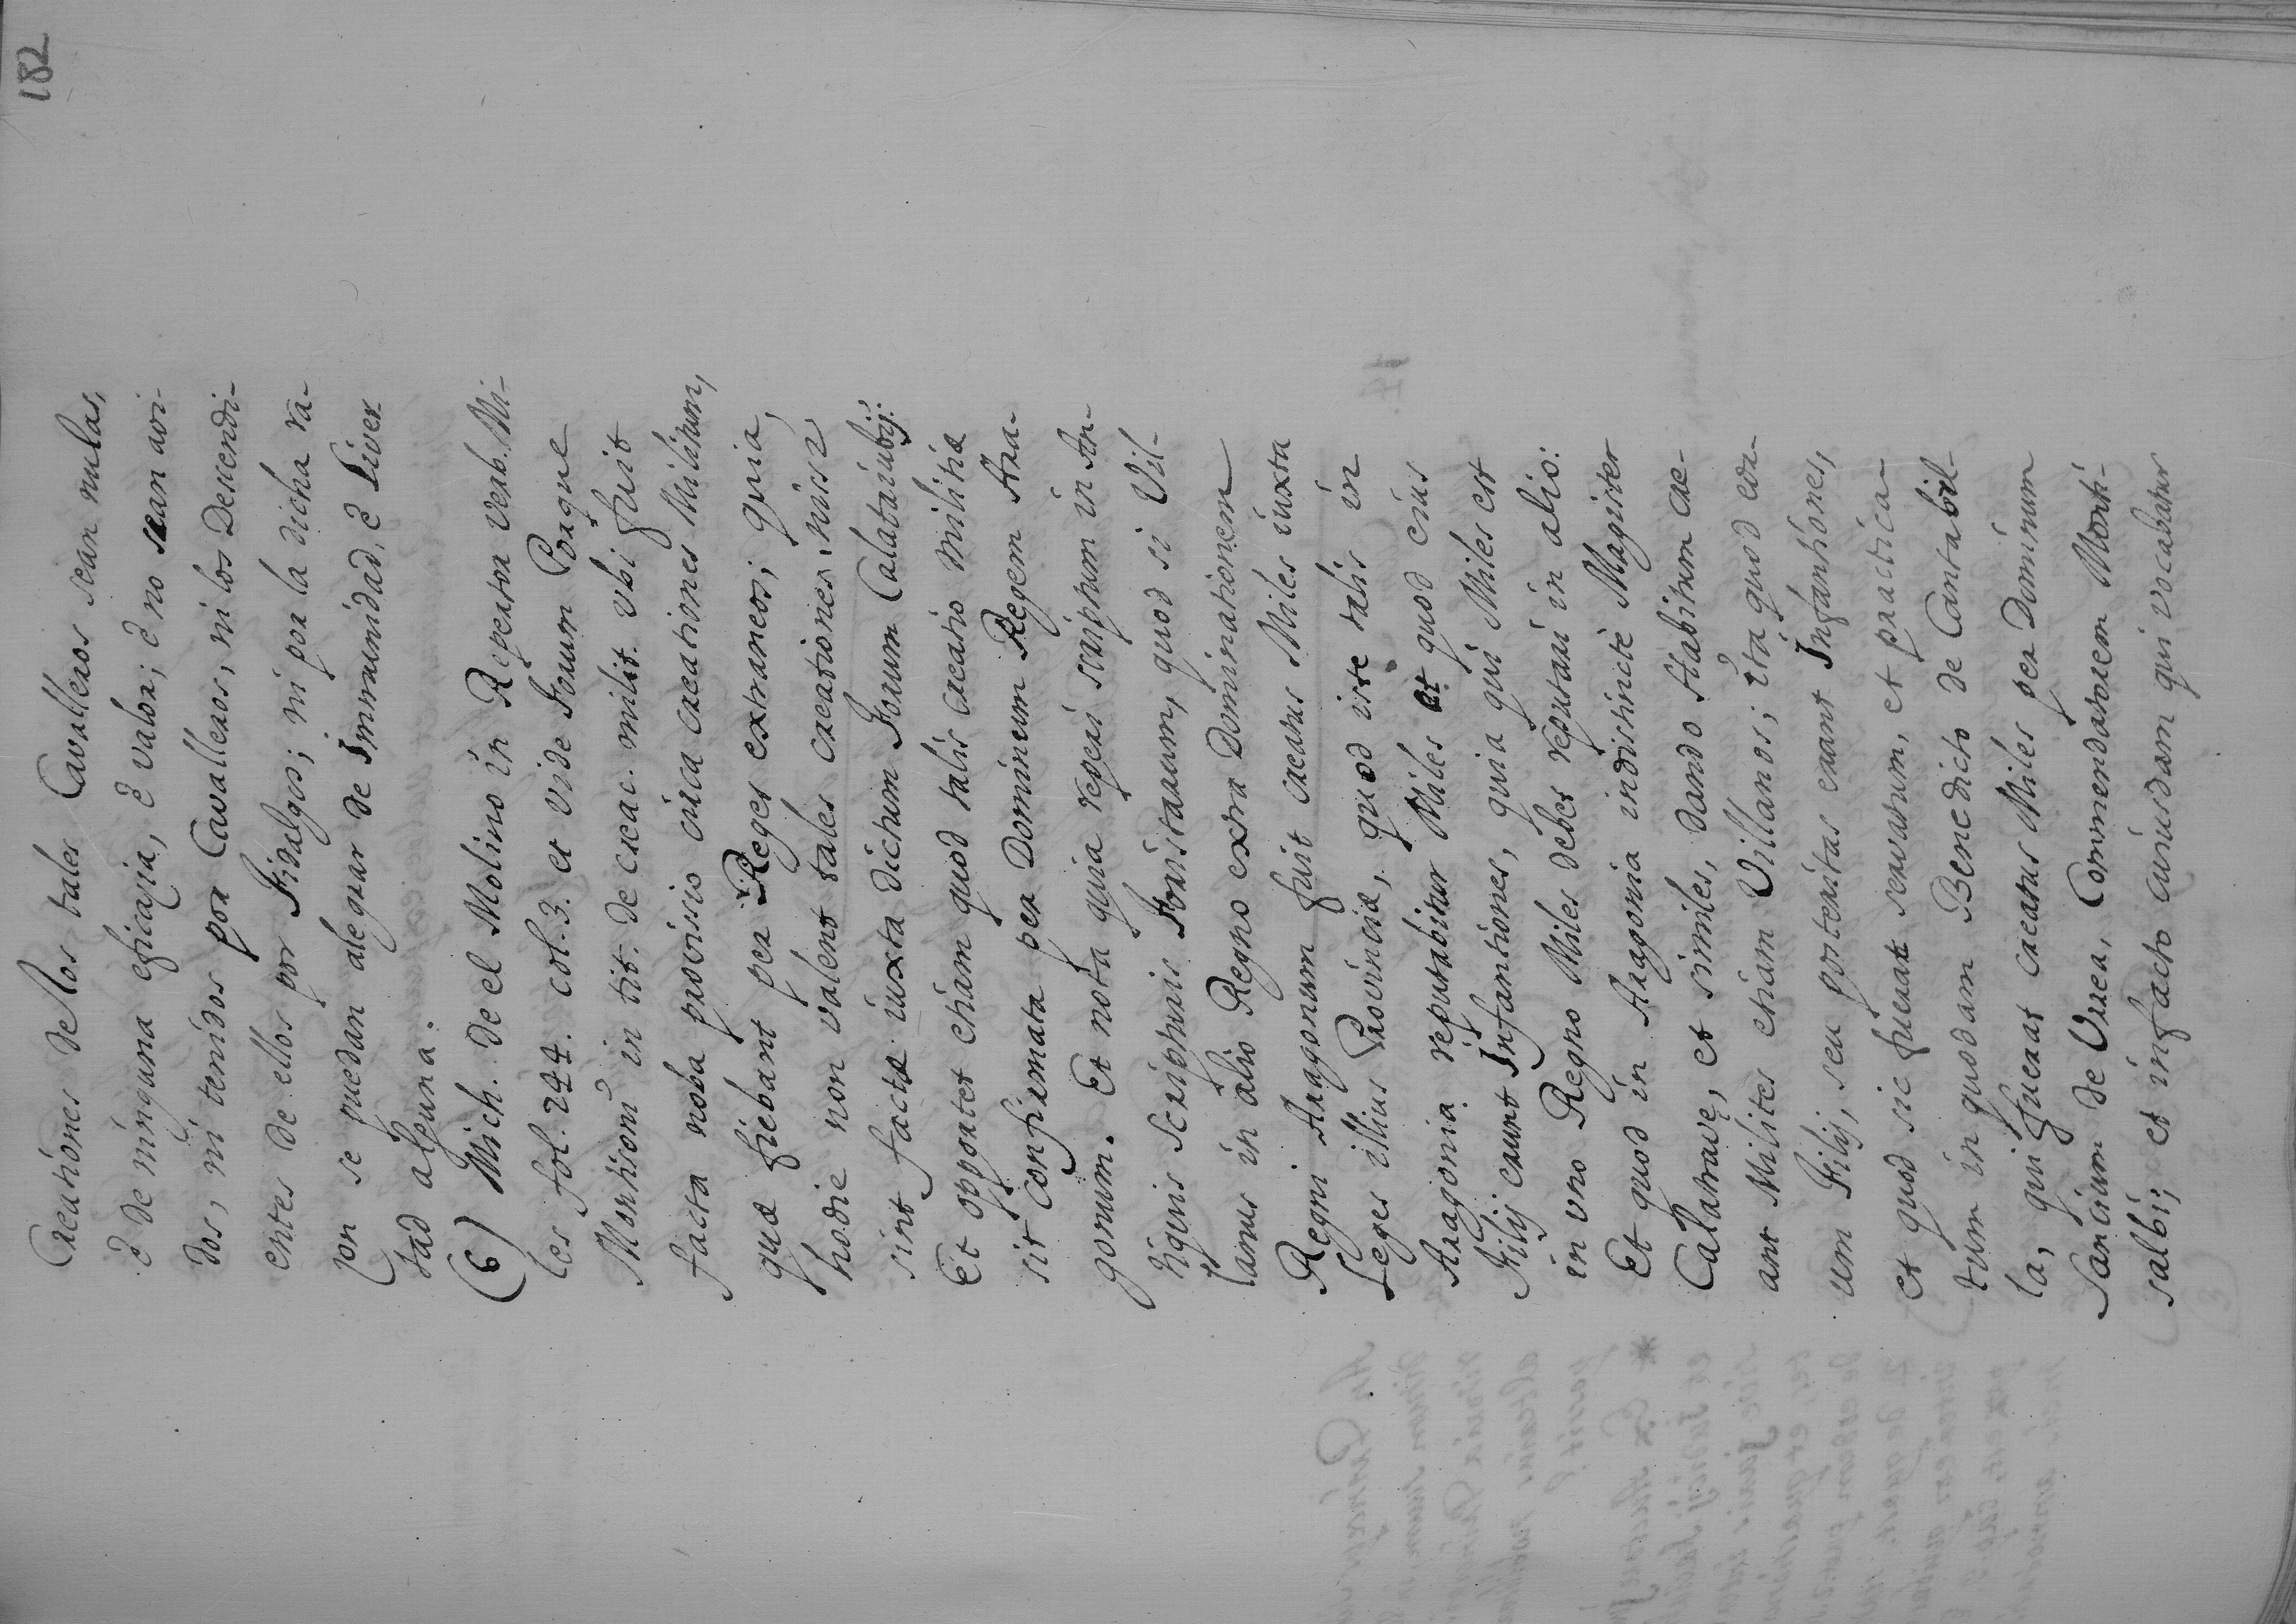 182
Creationes de los tales Cavalleros sean nulas,
è de ninguna eficazia, è valor; è no sean avi-
dos, ni tenidos por Cavalleros, ni los Descendi-
entes de ellos por Fidalgos; ni por la dicha ra-
zon se puedan alegrar de Immunidad, è Liver
tad alguna.
(6) Mich. de el Molino in Repertor verb. Mi-
les fol. 244. col. 3. et vide Forum Porque
Montisonũ in tit. de creac. milit. vbi fuit
facta noba provisio circa creationes Militum,
quæ fiebant per Reges extraneos; quia,
hodie non valent tales creationes, nisi
sint factæ iuxta dictum Forum Calatãiubij:
Et opportet etiam quod talis creatio militiæ
sit confirmata per Dominum Regem Ara-
gonum. Et nota quia reperi scriptum in An-
tiquis scripturis Foristarum, quod si Vil-
lanus in alio Regno extra Dominationem
Regni Aragonum fuit creatus Miles iuxta
Leges illius Provinciæ, quod iste talis in
Aragonia reputabitur Miles et quod eius
Filij erunt Infantiones, quia qui Miles est
in vno Regno Miles debet reputari in alio:
Et quod in Aragonia indistincte Magister
Calatravę, et similes, dando Habitum cre-
ant Milites etiam Villanos; ita quod eor-
um Filij, seu posteritas erant Infantiones,
et quod sic fuerat servatum, et practica-
tum in quodam Benedicto de Cantabil-
la, qui fuerat creatus Miles per Dominum
Sancium de Vrrea, Commendatorem Monti-
salbi; et in facto cuiusdam qui vocabatur